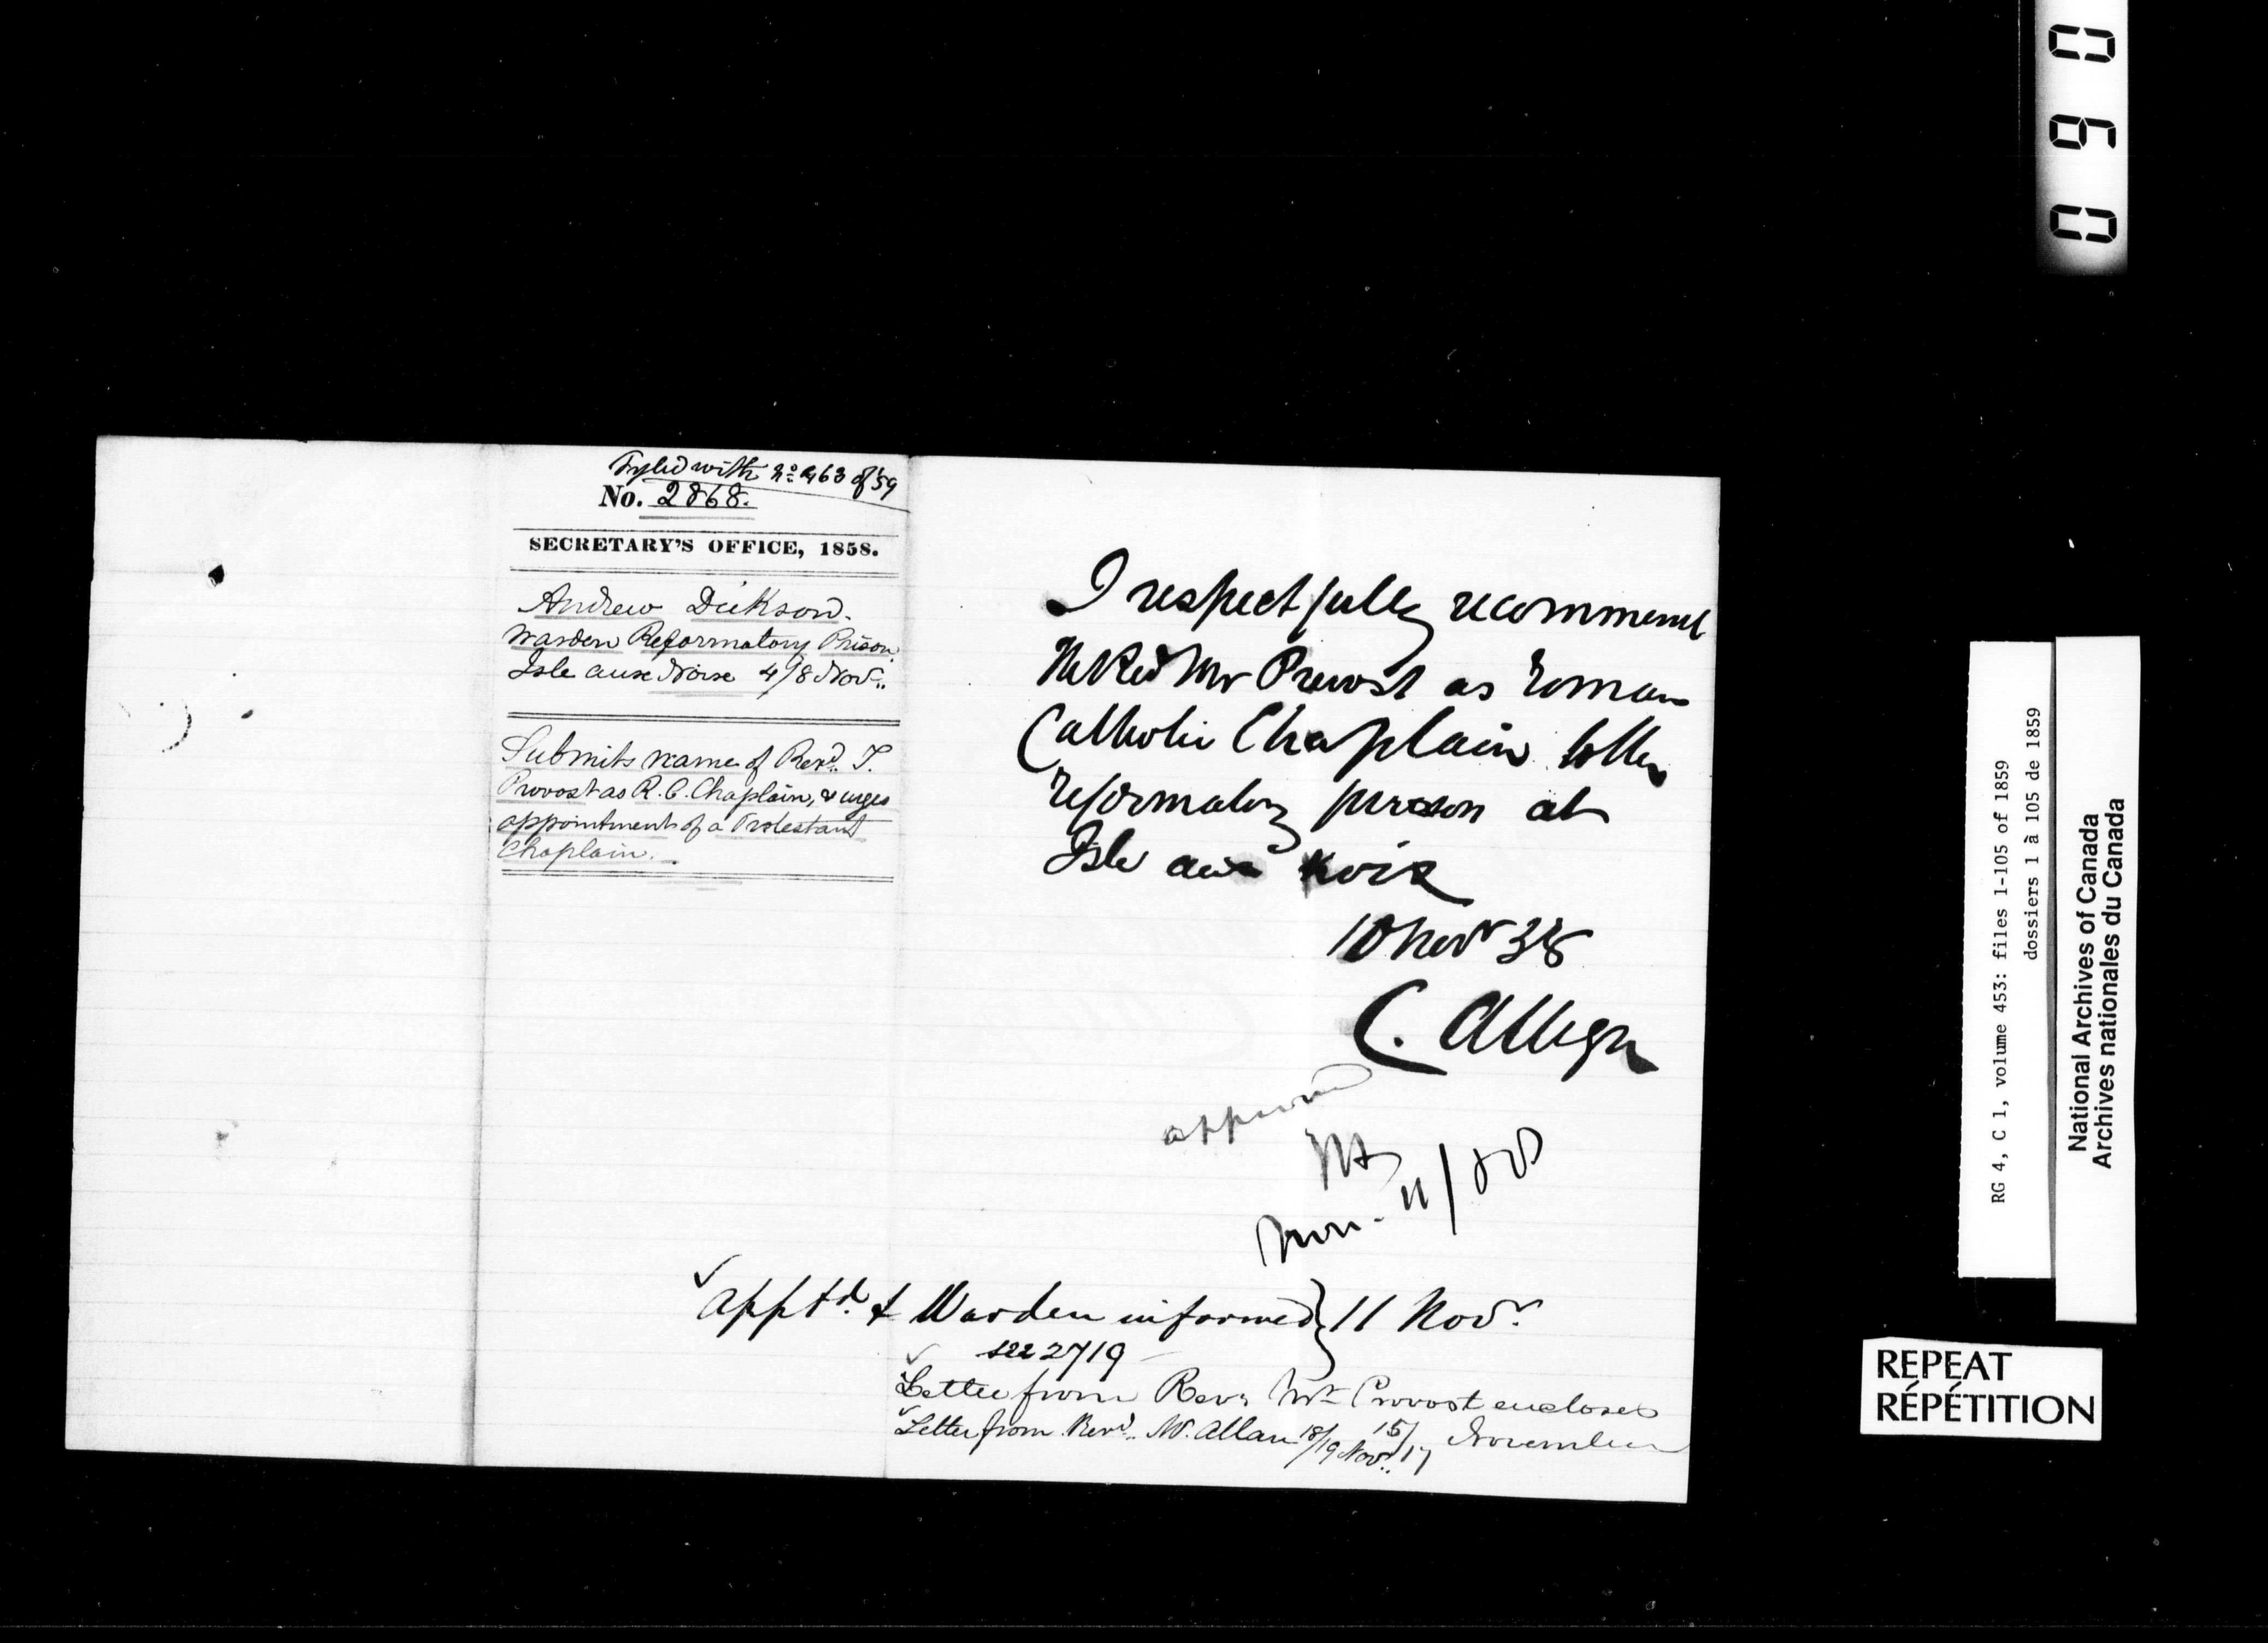 Fyled with No 463 of '59
No. 2868.
SECRETARY'S OFFICE, 1858.
Andrew Dickson.
Warden Reformatory Prison.
Isle aux Noix 4/8 Nov..
Submits name of Revd. T.
Provost as R. C. Chaplain, & urges
appointment of a Protestant
Chaplain.
I respectfully recommend
the Rev Mr Provost as Roman
Catholic Chaplain to the
reformatory prison at
Isle aux Noix
10 Novr 58
C. Alleyn
approved
Nov. 11/58
Apptd. & Warden informed } 11 Novr.
see 2719
Letter from Revd Mr Provost enclosed
15/17 November
Letter from Revd. M. Allan 18/19 Nov..
0 9 0
RG 4, C 1, volume 453: files 1-105 of 1859
dossiers 1 à 105 de 1859
National Archives of Canada
Archives nationales du Canada
REPEAT
RÉPÉTITION